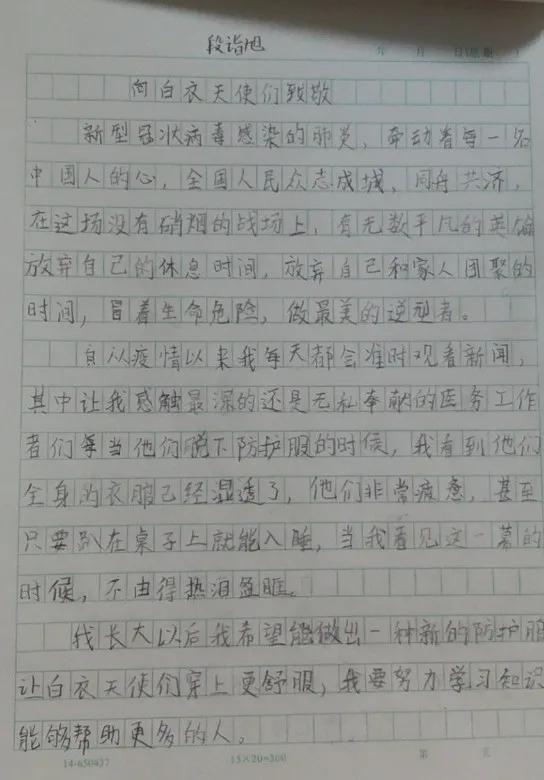 段诣旭
年 月 日(星期 )
向白衣天使们致敬
新型冠状病毒感染的肺炎，牵动着每一名
中国人的心，全国人民众志成城，同舟共济，
在这场没有硝烟的战场上，有无数平凡的英雄
放弃自己的休息时间，放弃自己和家人团聚的
时间，冒着生命危险，做最美的逆型者。
自从疫情以来我每天都会准时观看新闻，
其中让我感触最深的还是无私奉献的医务工作
者们每当他们脱下防护服的时候，我看到他们
全身的衣服已经湿透了，他们非常疲惫，甚至
只要趴在桌子上就能入睡，当我看见这一幕的
时候，不由得热泪盈眶。
我长大以后我希望能做出一种新的防护服
让白衣天使们穿上更舒服，我要努力学习知识
能够帮助更多的人。
14-650437 15×20=300 第 页